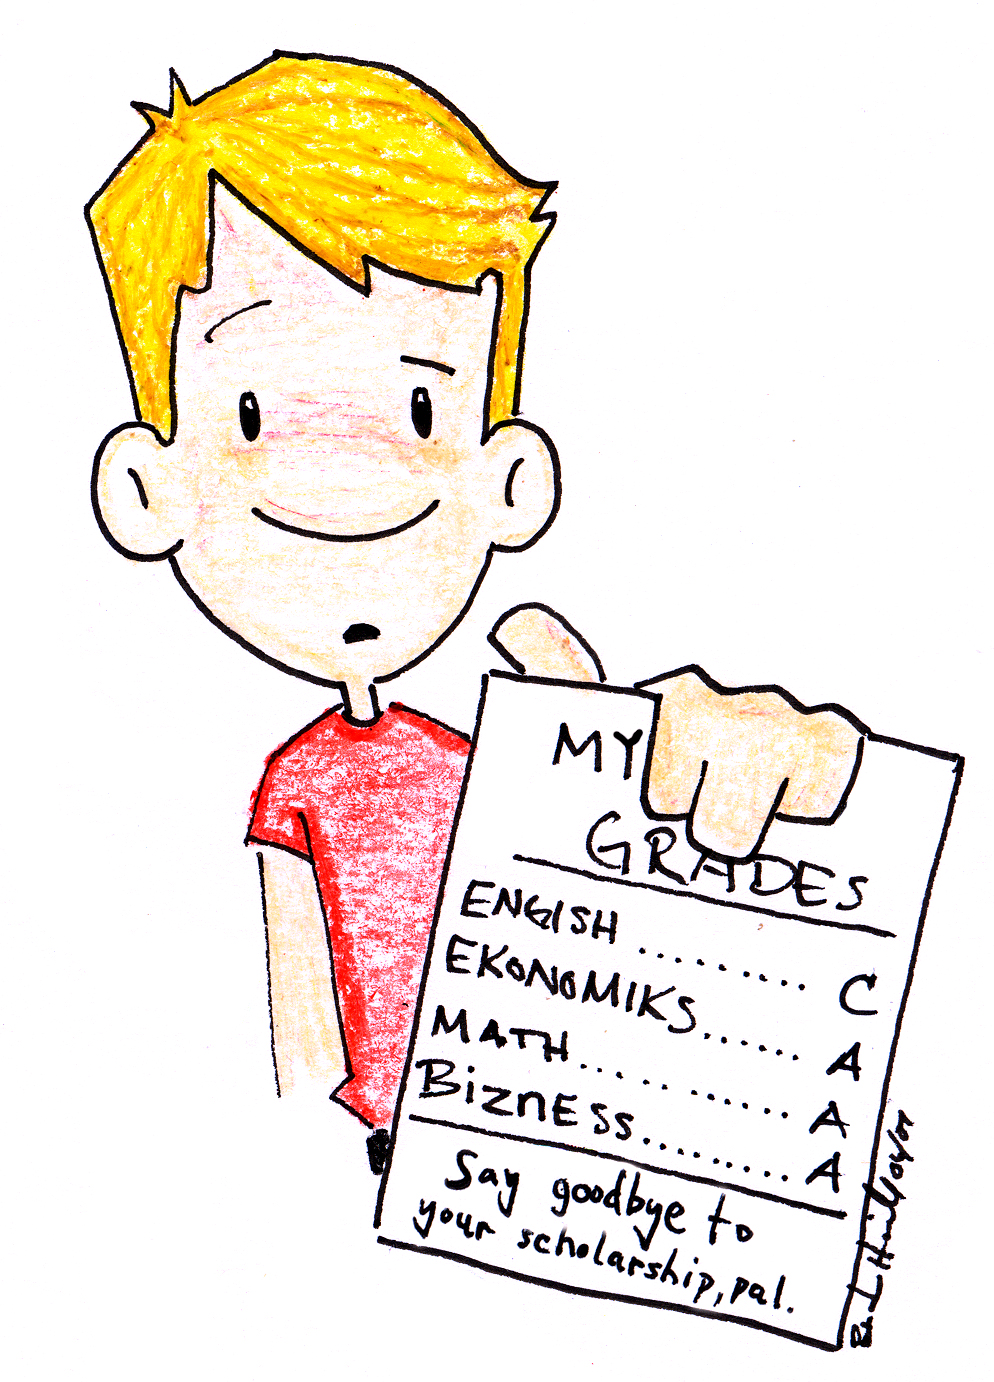 MY
GRADES
ENGISH .......... C
EKONOMIKS...... A
MATH........... A
BIZNESS......... A
Say goodbye to
your scholarship, pal.